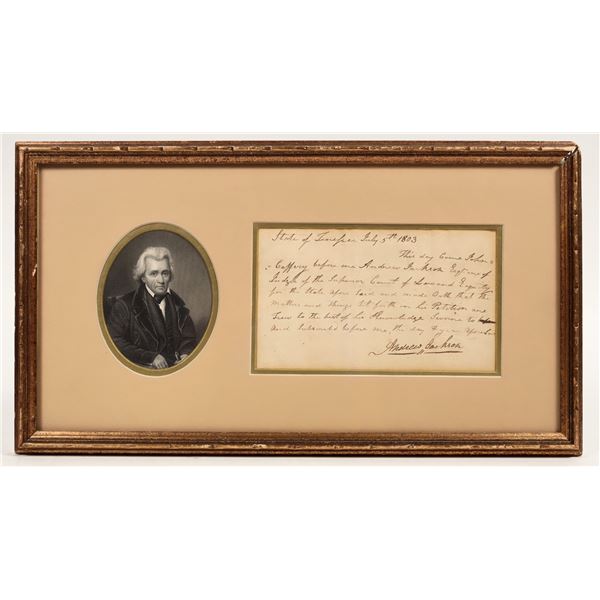 State of Tennessee July 5th 1803
This day Came John
Caffery before me Andrew Jackson Esqr one of
Judges of the Superior Court of Law and Equity
for the State afore Said and made Oath that the
matters and things Set forth in his Petition are
True to the best of his Knowledge Sworne to
and Subscribed before me, the day & year
Andrew Jackson